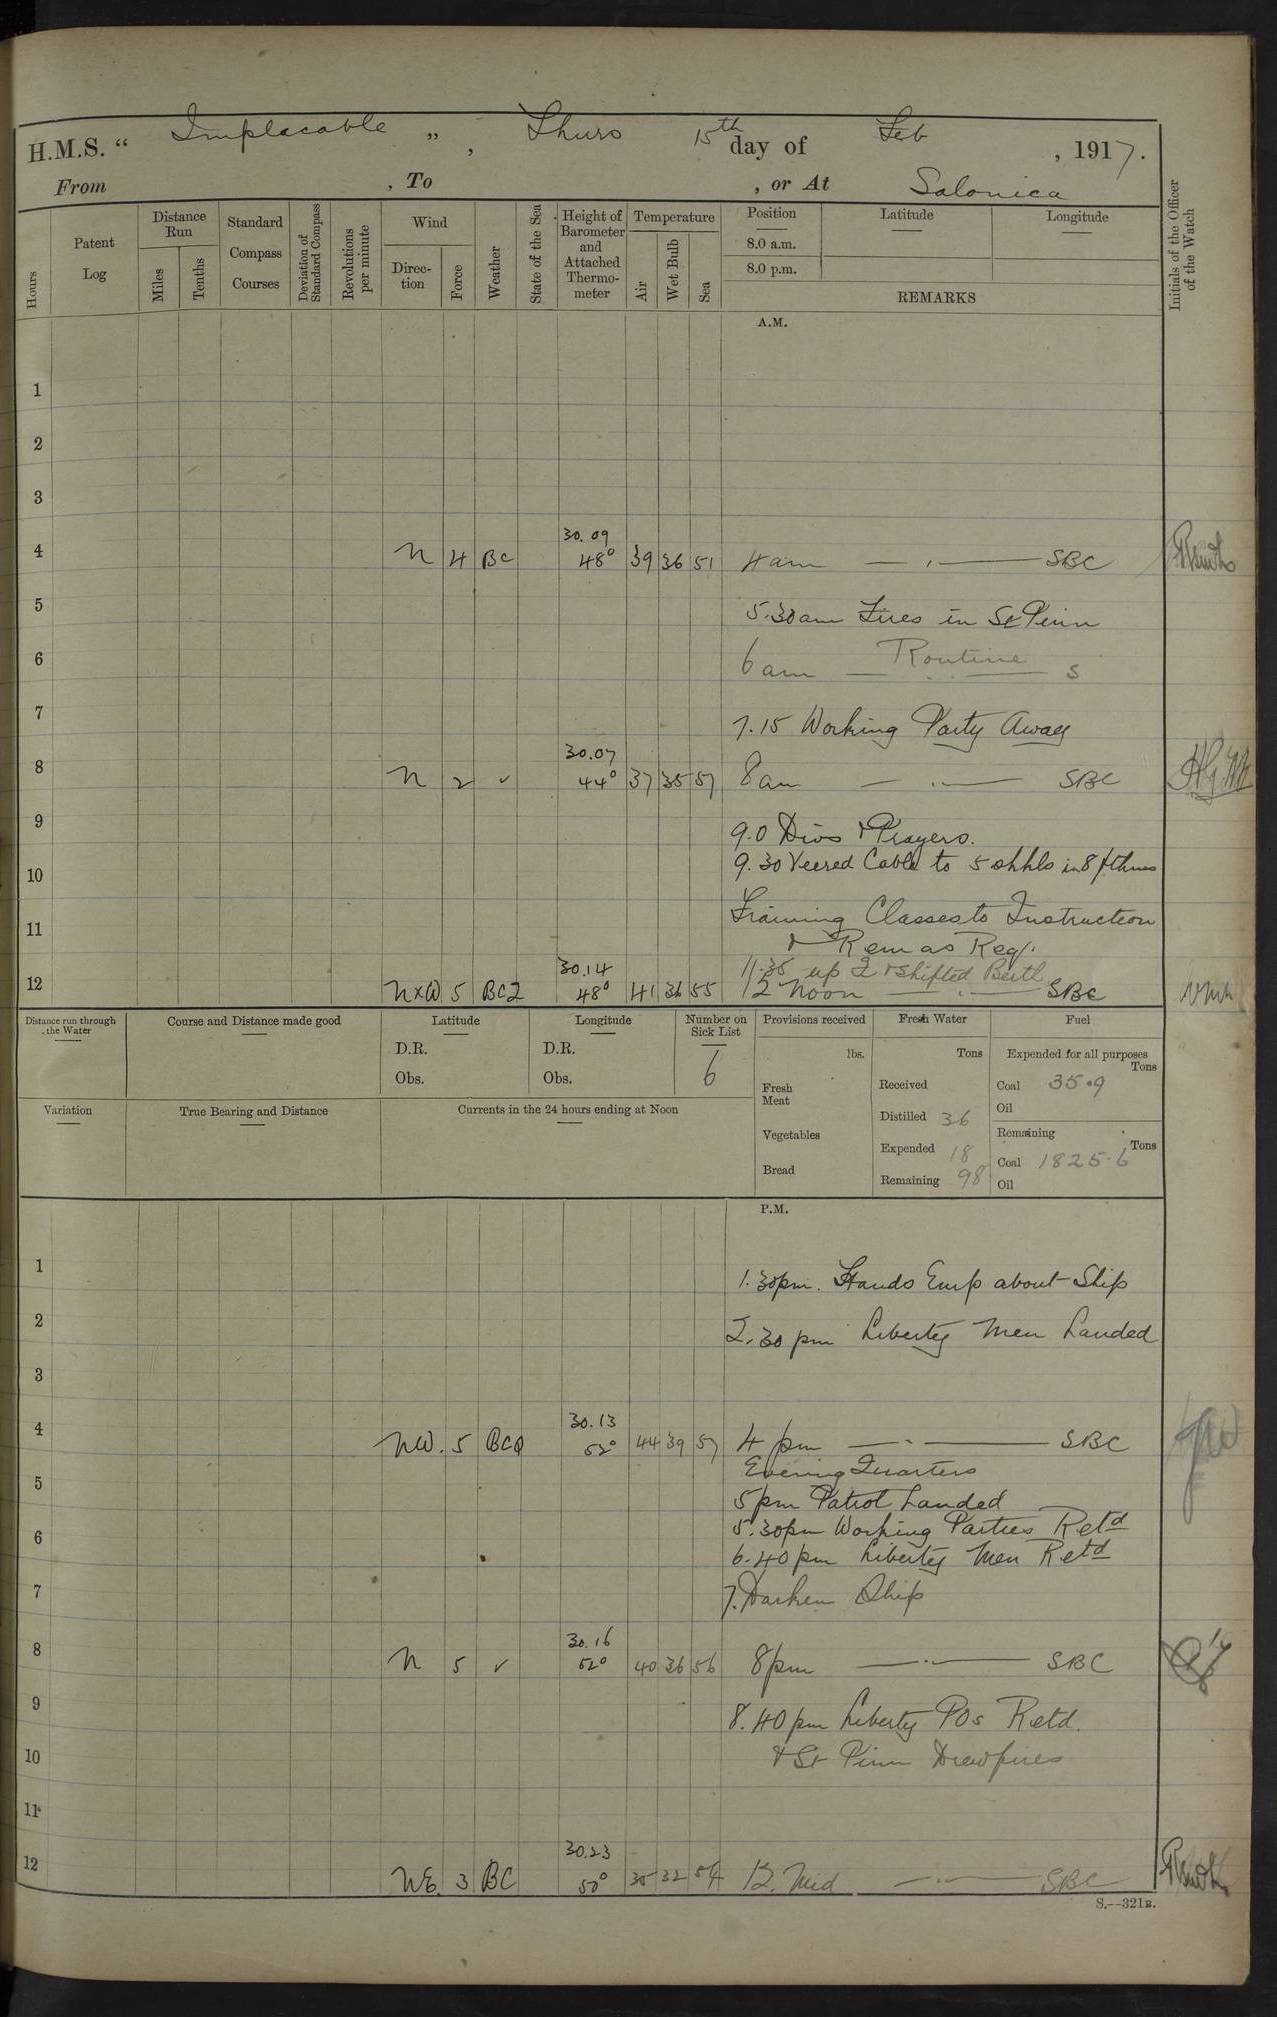 H.M.S. “ Implacable ”, Thurs 15th day of Feb , 1917.
From , To , or At Salonica
Hours
Patent Log
Distance Run
Miles
Tenths
Standard Compass Courses
Deviation of Standard Compass
Revolutions per minute
Wind
Direction
Force
Weather
State of the Sea
Height of Barometer and Attached Thermometer
Temperature
Air
Wet Bulb
Sea
Position
8.0 a.m.
8.0 p.m.
Latitude
Longitude
REMARKS
Initials of the Officer of the Watch
A.M.
1
2
3
30.09
4 N 4 BC 48° 39 36 51 4 am — . — SBC
5 5.30am Fires in St Pinn
6 6 am — Routine — s
7 7.15 Working Party Away
30.07
8 N 2 ✓ 44° 37 35 57 8 am — . — SBC
9 9.0 Divs & Prayers.
9.30 Veered Cable to 5 shkls in 8 fthms
10
Training Classes to Instruction
11 & Rem as Req.
30.14 11.35 up & Shifted Berth
12 NxW 5 BCQ 48° 41 36 55 12 Noon — . — SBC
Distance run through the Water
Course and Distance made good
Latitude
D.R.
Obs.
Longitude
D.R.
Obs.
Number on Sick List
6
Provisions received
lbs.
Fresh Meat
Vegetables
Bread
Fresh Water
Tons
Received
Distilled 36
Expended 18
Remaining 98
Fuel
Expended for all purposes
Tons
Coal 35.9
Oil
Remaining
Tons
Coal 1825.6
Oil
Variation
True Bearing and Distance
Currents in the 24 hours ending at Noon
P.M.
1 1.30pm. Hands Emp about Ship
2 2.30 pm Liberty Men Landed
3
30.13
4 NW. 5 BCQ 52° 44 39 57 4 pm — . — SBC
Evening Quarters
5 5 pm Patrol Landed
5.30pm Working Parties Retd
6 6.40 pm Liberty Men Retd
7 7. Darken Ship
30.16
8 N 5 ✓ 52° 40 36 56 8 pm — . — SBC
9 8.40 pm Liberty POs Retd.
10 & St Pinn Drew fires
11
30.23
12 NE. 3 BC 50° 35 32 54 12. Mid — . — SBC
S.—321B.